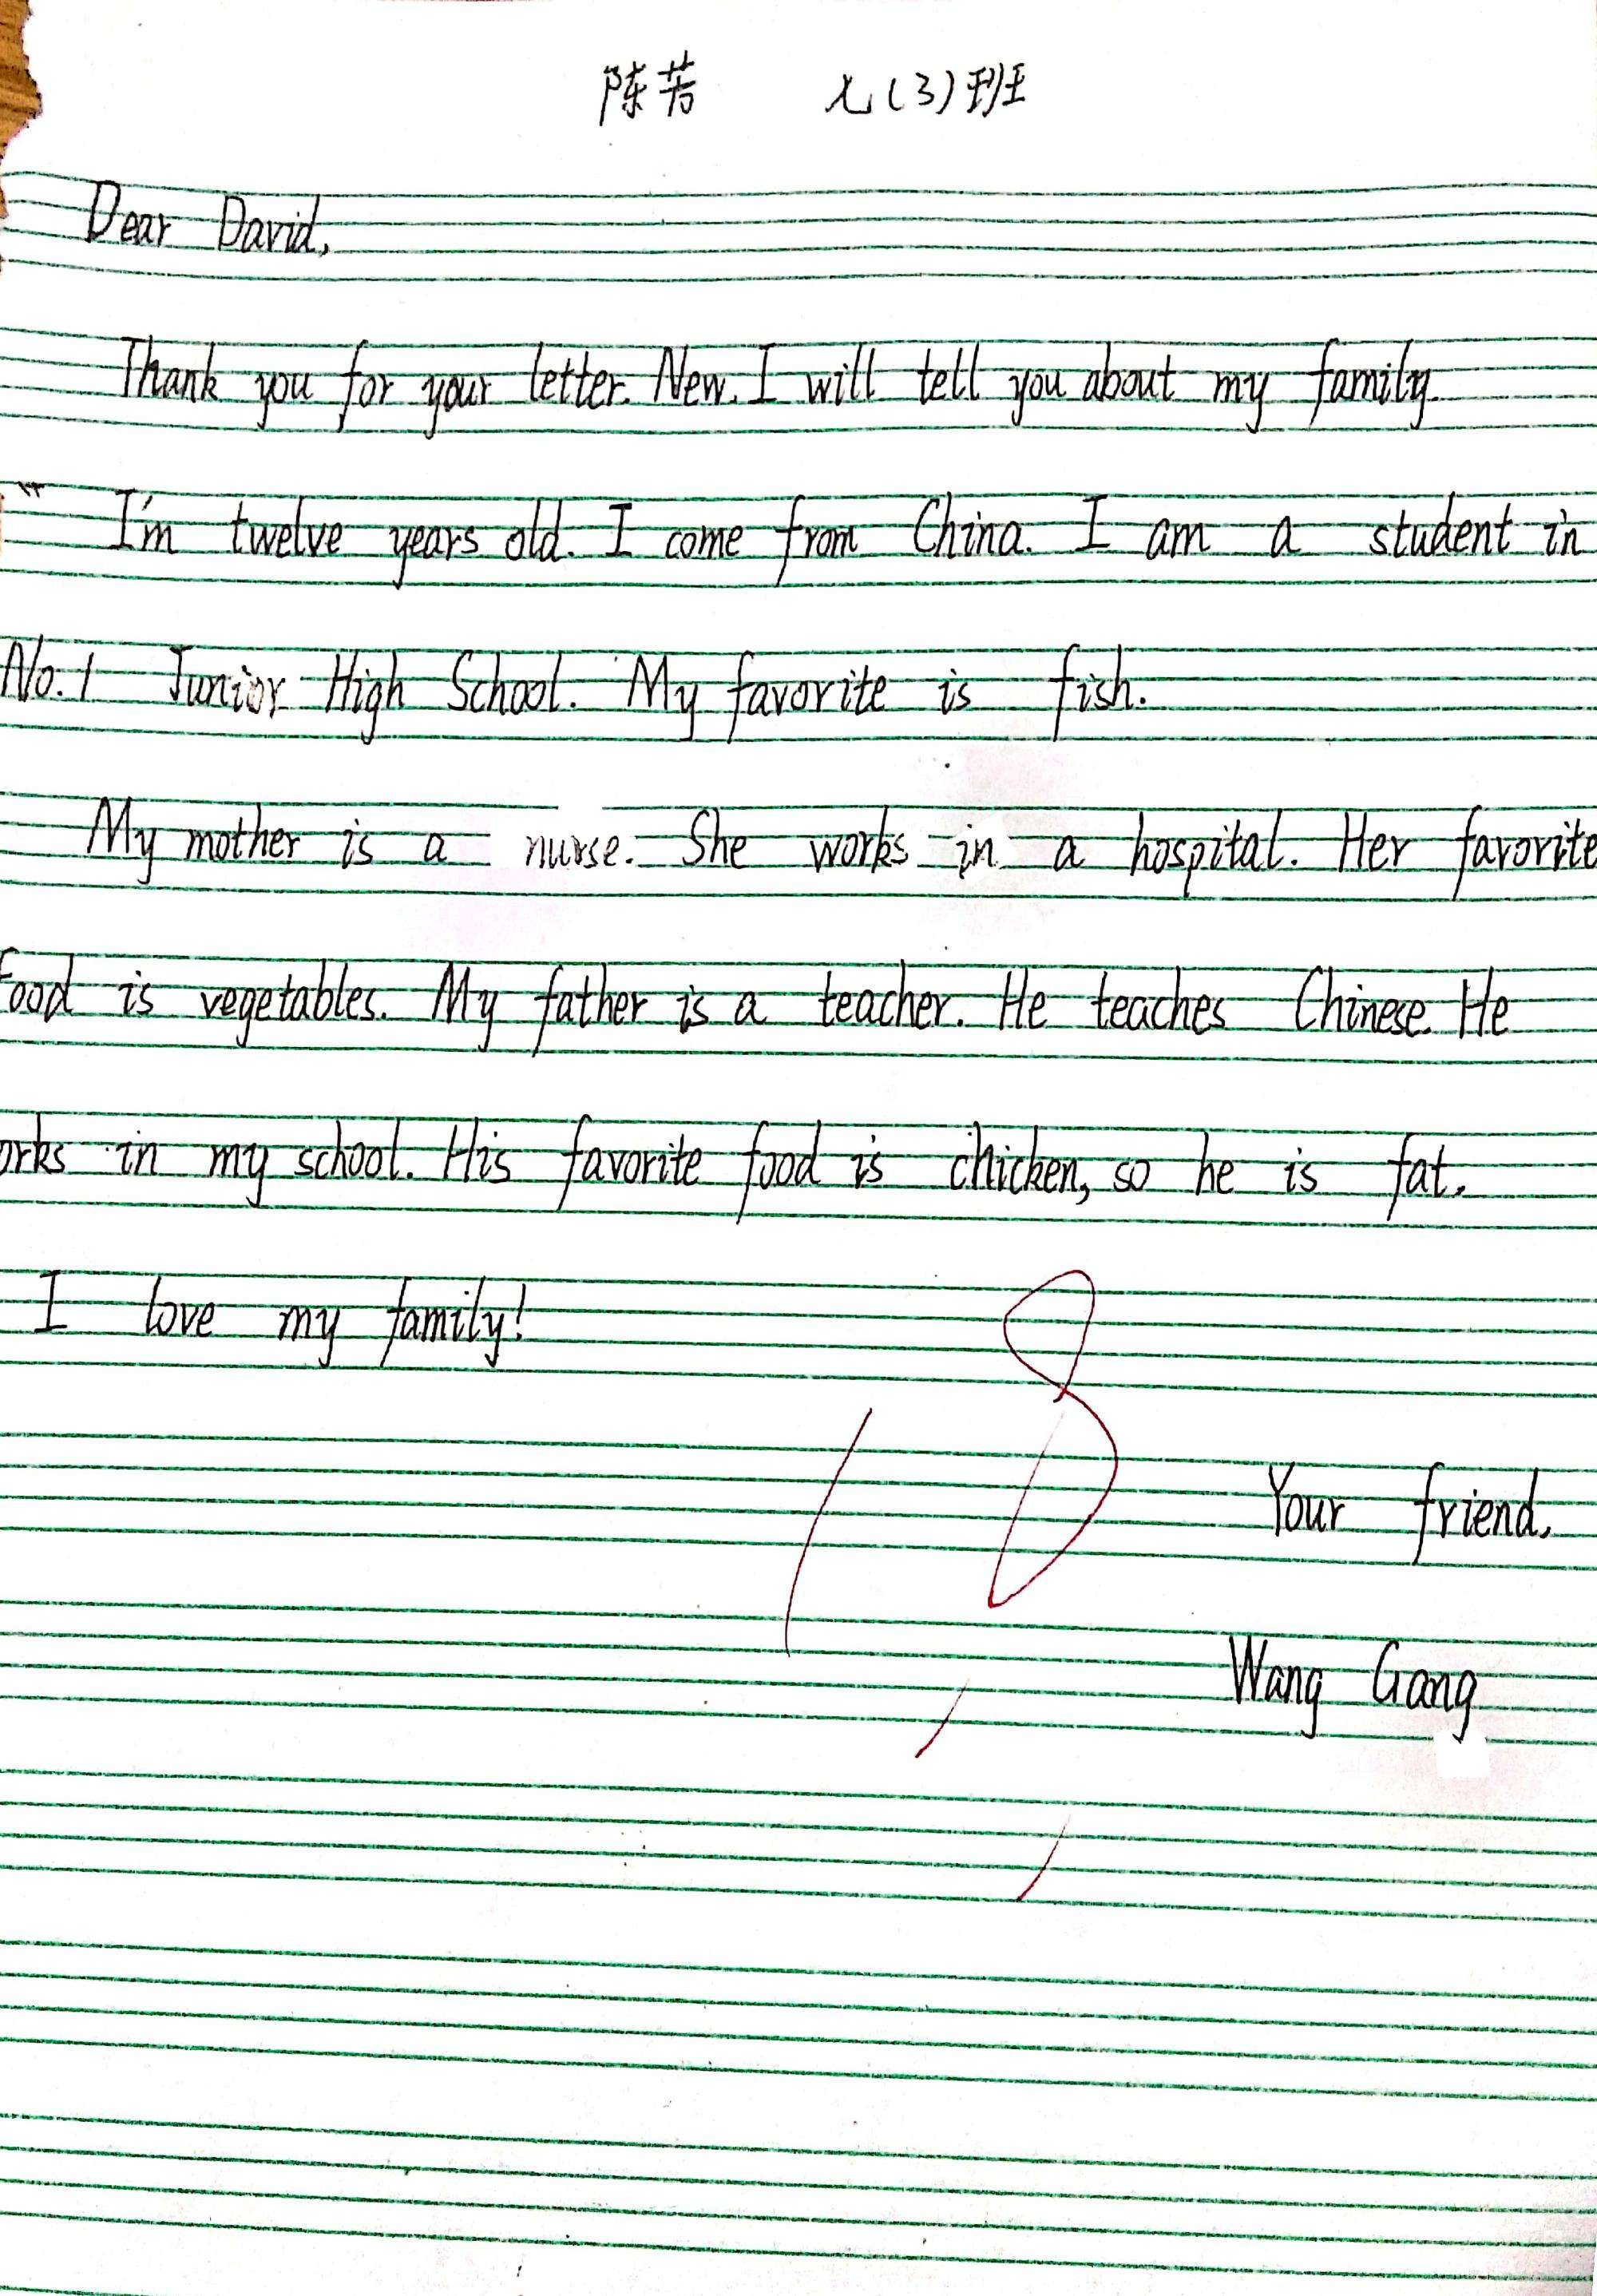 陈芳 七(3)班
Dear David,
Thank you for your letter. New. I will tell you about my family.
I'm twelve years old. I come from China. I am a student in
No. 1 Junior High School. My favorite is fish.
My mother is a nurse. She works in a hospital. Her favorite
food is vegetables. My father is a teacher. He teaches Chinese. He
orks in my school. His favorite food is chicken, so he is fat.
I love my family!
18
Your friend,
Wang Gang